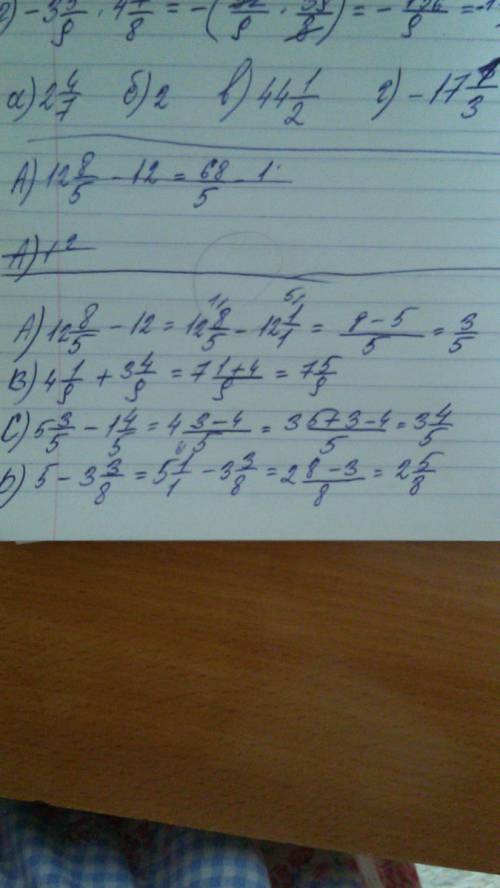 г) -3 5/9 · 4 7/8 = -( 32/9 · 39/8 ) = - 156/9 =
а) 2 4/7 б) 2 в) 44 1/2 г) -17 1/3
А) 12 8/5 - 12 = 68/5 - 1
А) 1 2
А) 12 8/5 - 12 = 12 8/5 - 12 1/1 = 8-5/5 = 3/5
В) 4 1/9 + 3 4/9 = 7 1+4/9 = 7 5/9
С) 5 3/5 - 1 4/5 = 4 3-4/5 = 3 5+3-4/5 = 3 4/5
D) 5 - 3 3/8 = 5 1/1 - 3 3/8 = 2 8-3/8 = 2 5/8